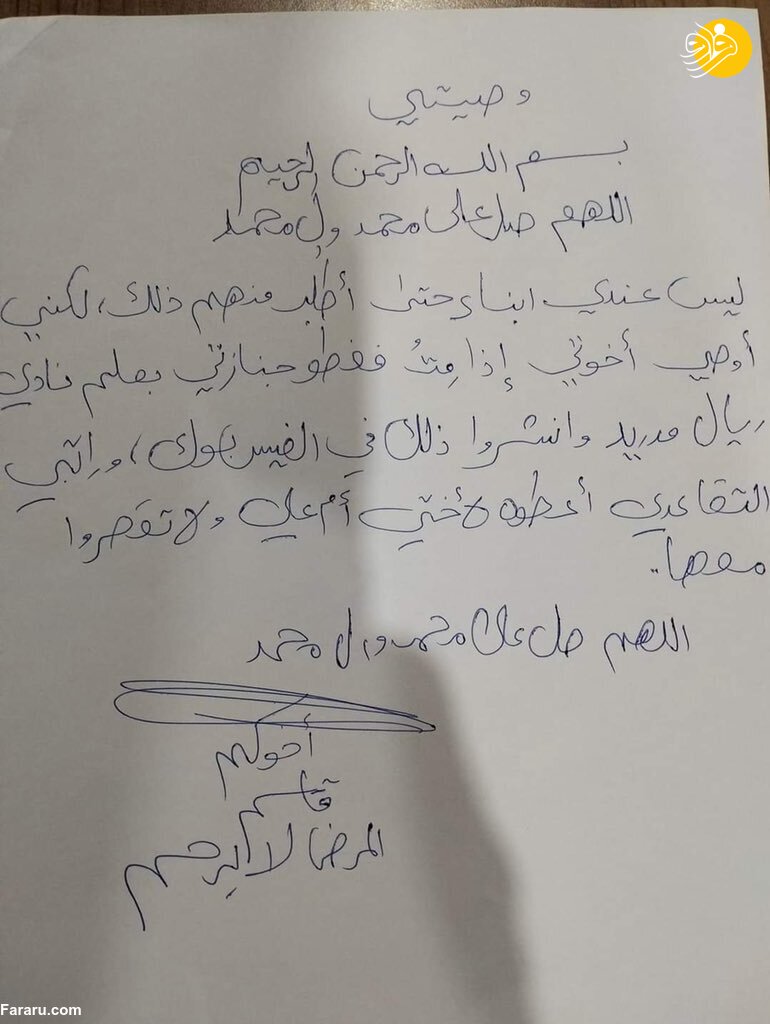 فرارو
وصيتي
بسم الله الرحمن الرحيم
اللهم صل على محمد وال محمد
ليس عندي ابناء حتى أطلب منهم ذلك، لكني
أوصي أخوتي إذا مِتُ فغطو جنازتي بعلم نادي
ريال مدريد وانشروا ذلك في الفيس بوك، وراتبي
التقاعدي أعطوه لأختي أم علي ولا تقصروا
معها..
اللهم صل على محمد وال محمد
أخوكم
قاسم
المرض لا يرحم
Fararu.com